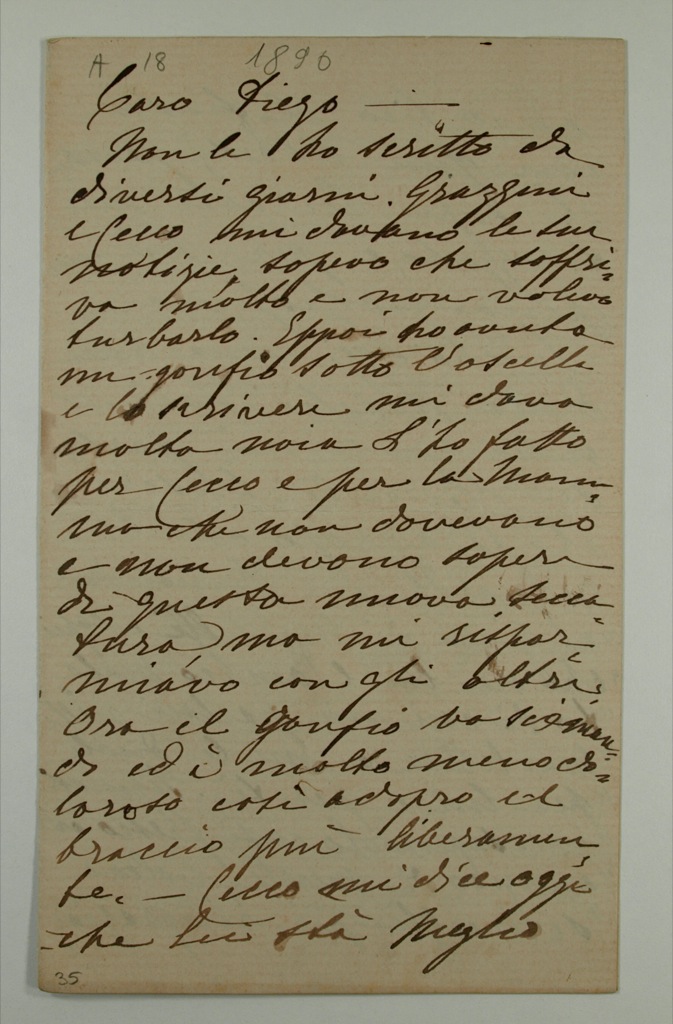 A 18 1890
Caro Diego —
Non le ho scritto da
diversi giorni. Grazzini
e Cecco mi davano le sue
notizie, sapevo che soffri=
va molto e non volevo
turbarlo. Eppoi ho avuto
un gonfio sotto l'ascella
e lo scrivere mi dava
molta noia L'ho fatto
per Cecco e per la Mam=
ma che non dovevano
e non devono sapere
di questa nuova secca=
tura ma mi rispar=
miavo con gli altri.
Ora il gonfio va sceman=
do ed è molto meno do=
loroso così adopro il
braccio più liberamen
te. — Cecco mi dice oggi
che lei stà meglio
35